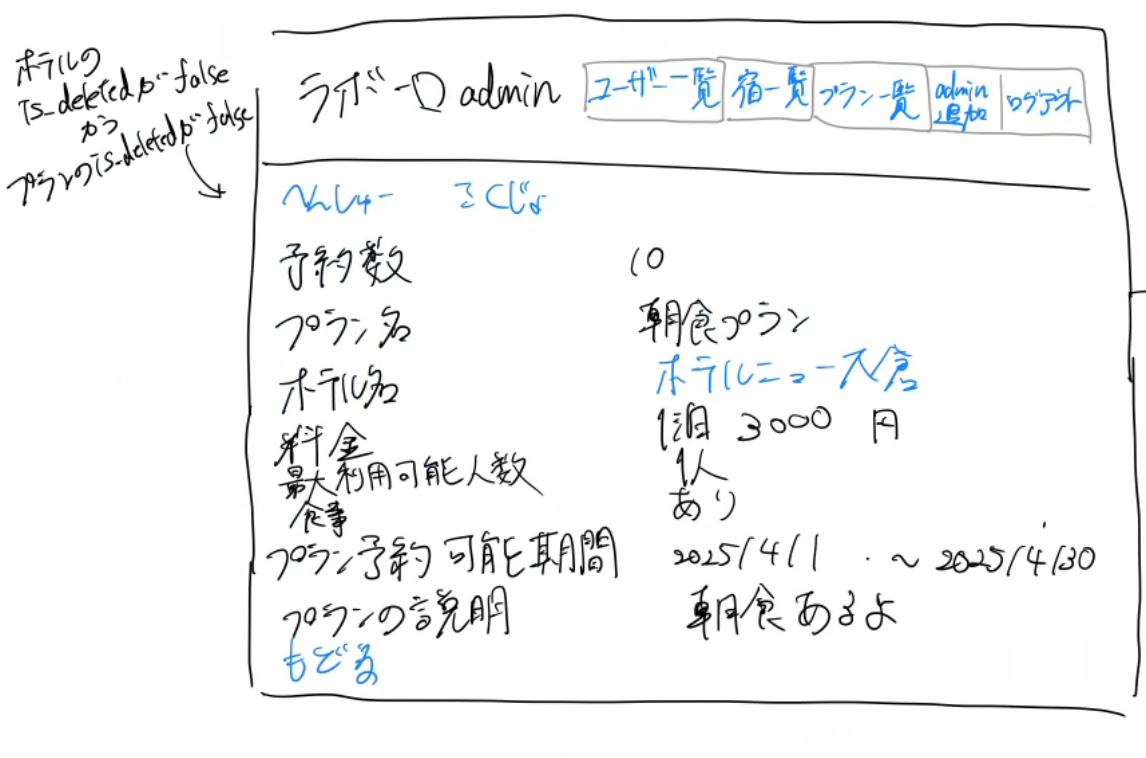 ホテルの
is_deletedが false
かつ
プランのis_deletedが false
ライボーロ admin
ユーザー一覧 宿一覧 プラン一覧 admin追加 ログアウト
へんしゅー さくじょ
予約数 10
プラン名 朝食プラン
ホテル名 ホテルニュー大倉
料金 1泊 3000 円
最大利用可能人数 1人
食事 あり
プラン予約可能期間 2025/4/1 ~ 2025/4/30
プランの説明 朝食あるよ
もどる